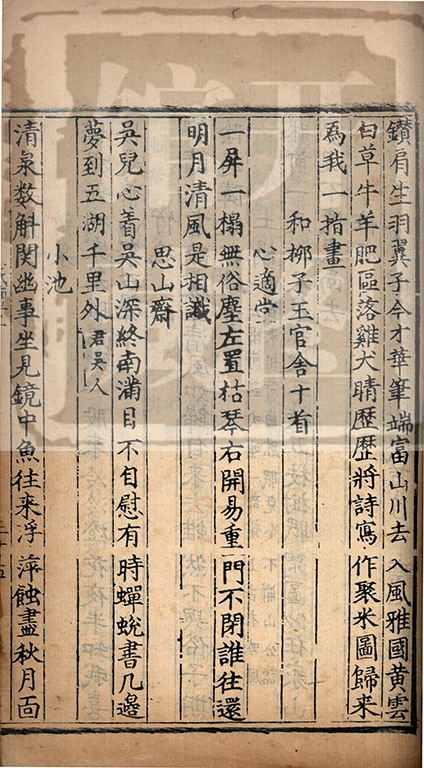 鑚肩生羽翼子今才華筆端富山川去入風雅國黃雲
白草牛羊肥區落雞犬晴歷歷將詩寫作聚米圖歸來
為我一指畫
和柳子玉官舍十首
心適堂
一屏一榻無俗塵左置枯琴右開易重門不閉誰往還
明月清風是相識
思山齋
吳兒心着吳山深終南滿目不自慰有時蟬蛻書几邊
夢到五湖千里外君吳人
小池
清泉数斛関幽事坐見鏡中魚往来浮萍蝕盡秋月面